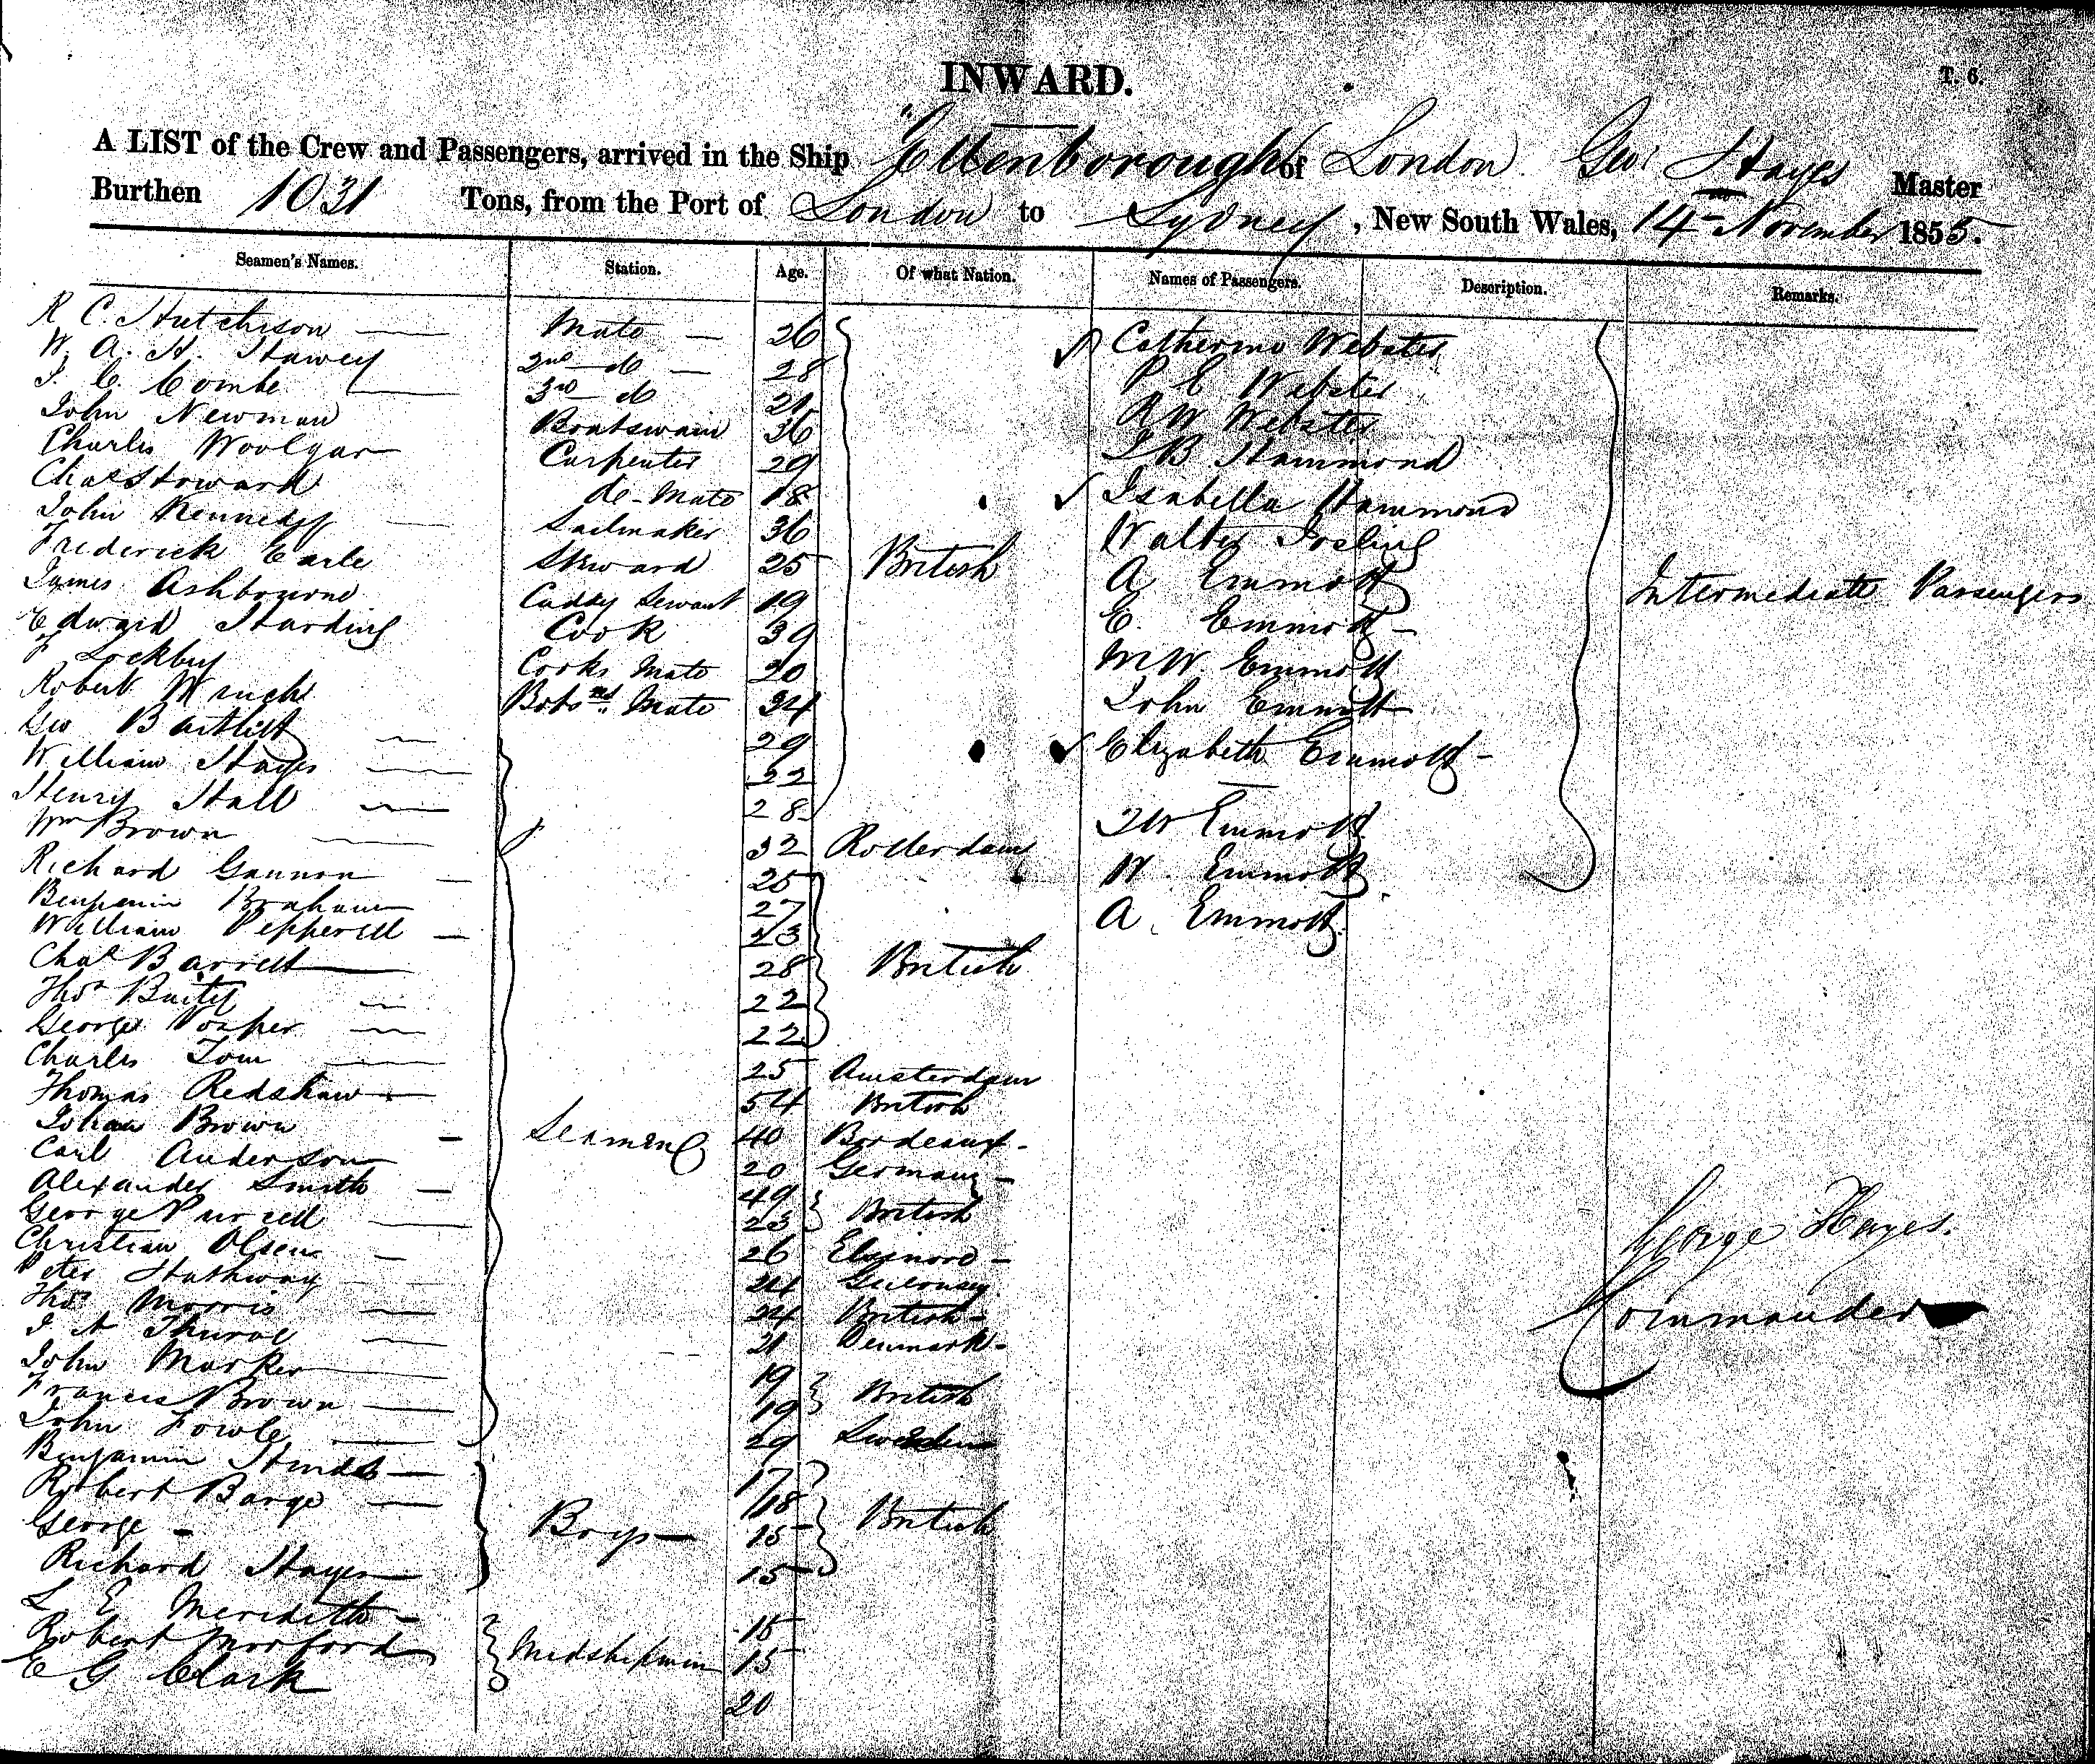 INWARD.
T. 6.
A LIST of the Crew and Passengers, arrived in the Ship "Ellenborough" of London. Geo: Hayes Master
Burthen 1031 Tons, from the Port of London to Sydney, New South Wales, 14th November 1855.
Seamen's Names. Station. Age. Of what Nation. Names of Passengers. Description. Remarks.
R C. Hutchison Mate 26 Catherine Webster
W. A. H. Hawey 2nd do 28 P E Webster
J. C. Combe 3rd do 21 R W Webster
John Newman Boatswain 36 J B Hammond
Charles Woolgar Carpenter 29 Isabella Hammond
Chas Howard do - Mate 18 Walter Josling
John Kennedy Sailmaker 36 A Emmott
Frederick Earle Steward 25 British E. Emmott Intermediate Passengers
James Ashbourne Cuddy Servant 19 M W Emmott
Edward Harding Cook 39 John Emmott
F Lockbuy Cooks Mate 20 Elizabeth Emmott
Robert Bots Mate 34 J W Emmott
Geo Bartlett 29 W. Emmott
William Hayes 22 A. Emmott
Henry Hall 28
Wm Brown 32 Rotterdam
Richard Gannon 25
Benjamin Braham 27
William Pepperell 23
Chas Barrett 28 British
Thos 22
George Vosper 22
Charles Tom 25 Amsterdam
Thomas Redshaw 54 British
Johan Brown Seamen 40 Bordeaux
Carl Anderson 20 Germany
Alexander Smith 49 British
George Purcell 23
Christian Olsen 26 Elsinore
Peter Hathway 24 Guernsey
Thos Morris 24 British
J A Thurol 21 Denmark
John Marker 19 British
Francis Brown 19
John Fowle 29 Sweden
Benjamin Hinds 17
Robert Barge 18 British
George - Boys 15
Richard Hayes 15
L E Meredith 15
Robert Morford Midshipmen 15
E G Clark 20
George Hayes.
Commander